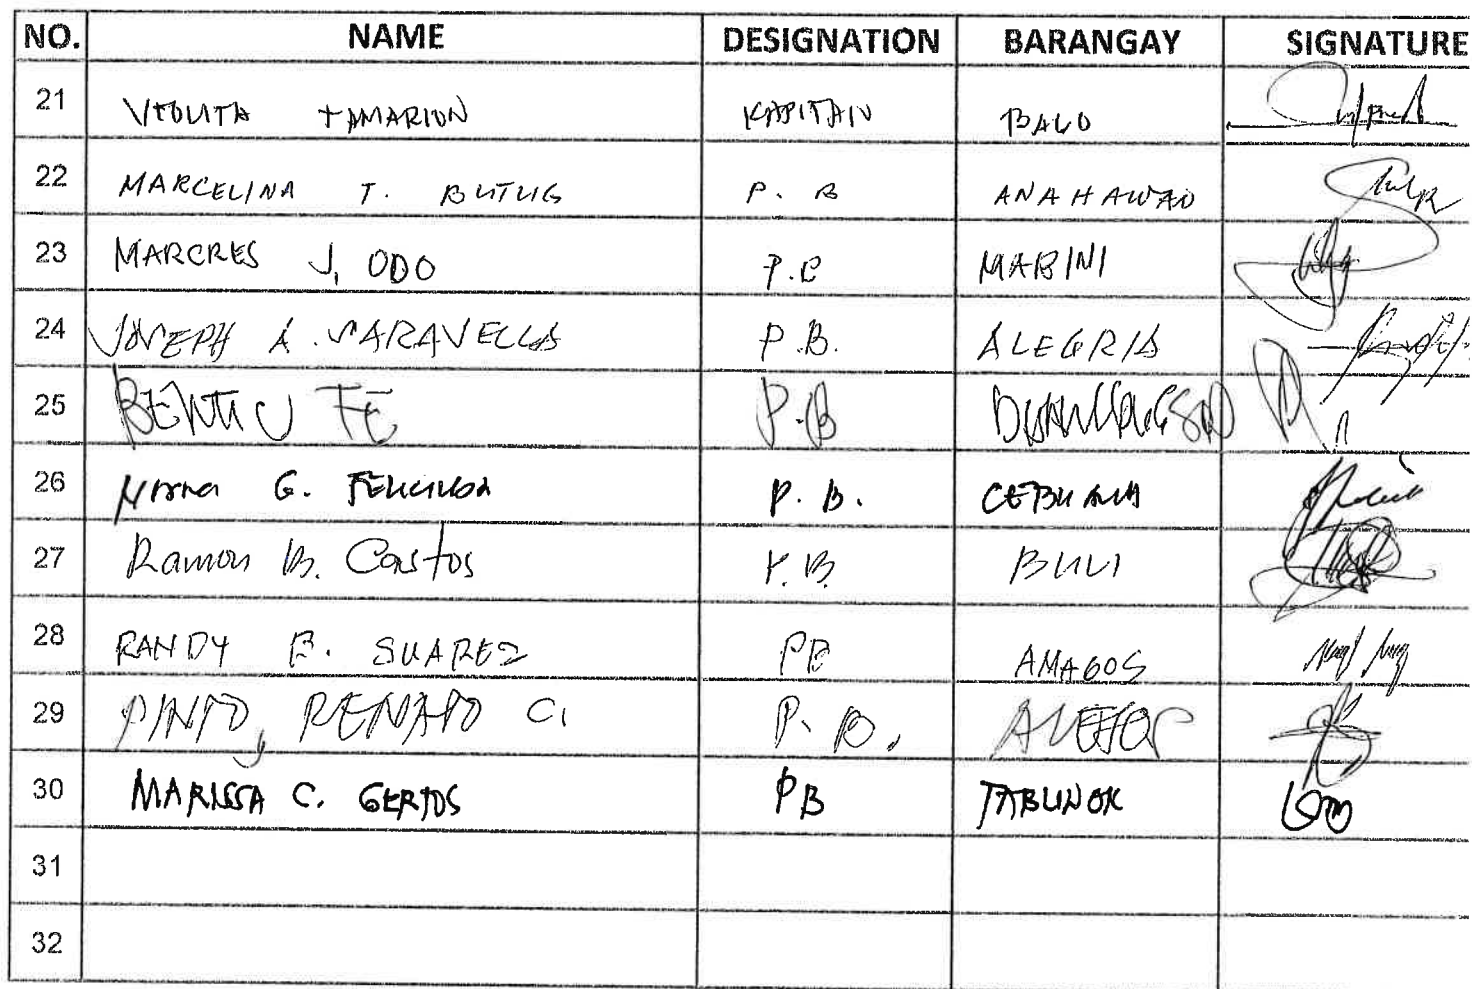 NO. NAME DESIGNATION BARANGAY SIGNATURE
21 VIOLITA TAMARION KAPITAN BALO
22 MARCELINA T. BUTUG P. B ANAHAWAN
23 MARCRES J, ODO P.B MABINI
24 JOSEPH A. SARAVELLA P.B. ALEGRIA
25 FE P.B
26 G. P. B.
27 Ramon B. Castos P.B. BULI
28 RANDY B. SUAREZ PB AMAGOS
29 PINTO, RENATO C. P. B.
30 MARISSA C. GERTOS PB TABUNOK
31
32